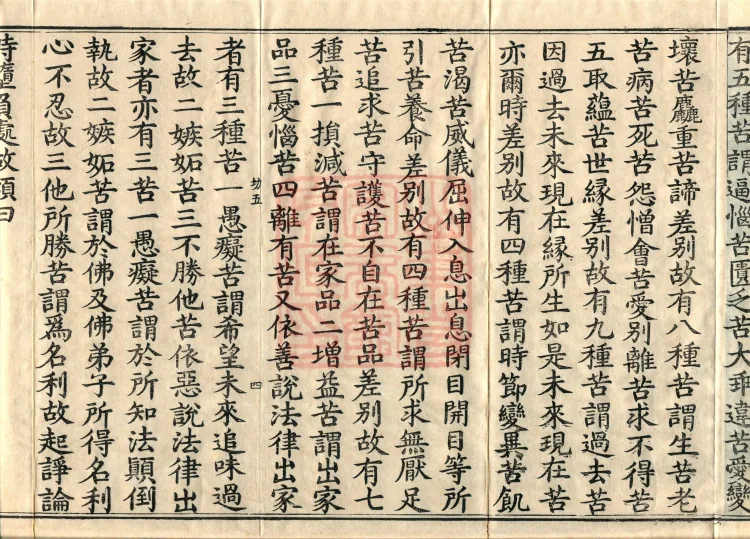 有五種苦謂逼惱苦匱乏苦大乖違苦愛變
壞苦麤重苦諦差別故有八種苦謂生苦老
苦病苦死苦怨憎會苦愛別離苦求不得苦
五取蘊苦世緣差別故有九種苦謂過去苦
因過去未來現在緣所生如是未來現在苦
亦爾時差別故有四種苦謂時節變異苦飢
苦渴苦威儀屈伸入息出息閉目開目等所
引苦養命差別故有四種苦謂所求無厭足
苦追求苦守護苦不自在苦品差別故有七
種苦一損減苦謂在家品二增益苦謂出家
品三憂惱苦四離有苦又依善說法律出家
幼五
四
者有三種苦一愚癡苦謂希望未來追味過
去故二嫉妬苦三不勝他苦依惡說法律出
家者亦有三苦一愚癡苦謂於所知法顛倒
執故二嫉妬苦謂於佛及佛弟子所得名利
心不忍故三他所勝苦謂爲名利故起諍論
時墮負處故頌曰